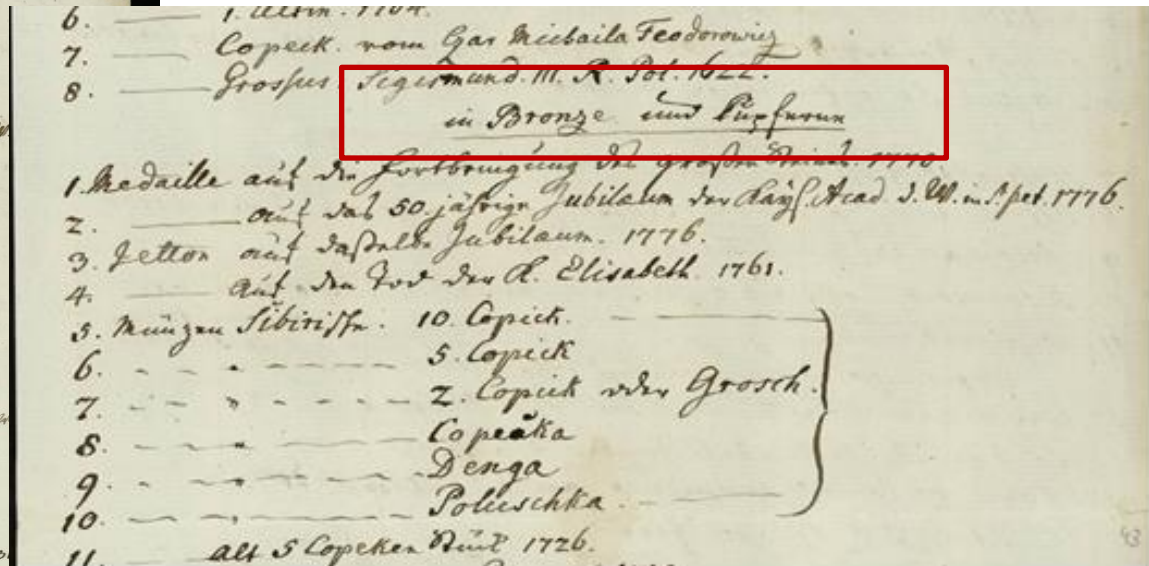 6. —— 1. Altin. 1704.
7. —— Copeck. vom Czar Michaila Feodorowicz
8. —— Grossus. Sigismund. III. R. Pol. 1622.
in Bronze und Kupferne
1. Medaille auf die Fortbringung des großen Steines. 1770
2. —— auf das 50. jährige Jubilaeum der Kayß. Acad. d. W. in S. pet. 1776.
3. Jetton auf daßelbe Jubilaeum. 1776.
4. —— auf den Tod der K. Elisabeth. 1761.
5. Münzen Sibirische. 10. Copick.
6. 5. Copeick
7. 2. Copick oder Grosch.
8. Copeaka
9. Denga
10. Poluschka.
11. alt 5 Copeken Stück 1726.